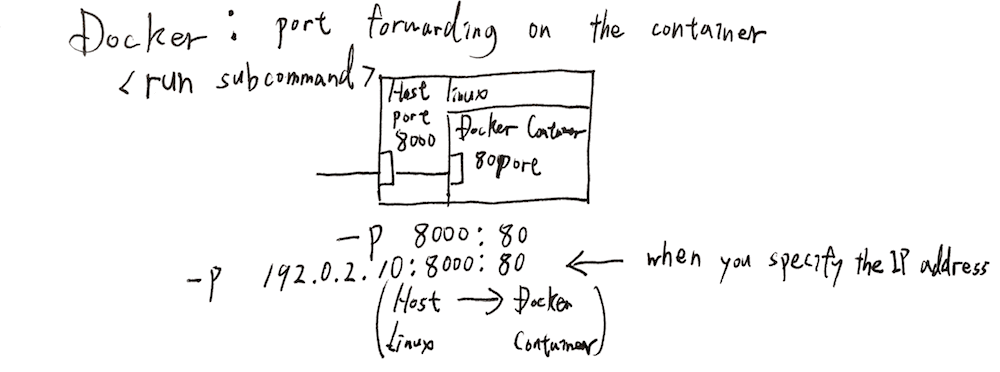 Docker: port forwarding on the container
<run subcommand>
Host linux
port
8000
Docker Container
80port
-p 8000:80
-p 192.0.2.10:8000:80 ← when you specify the IP address
(Host → Docker
Linux Container)